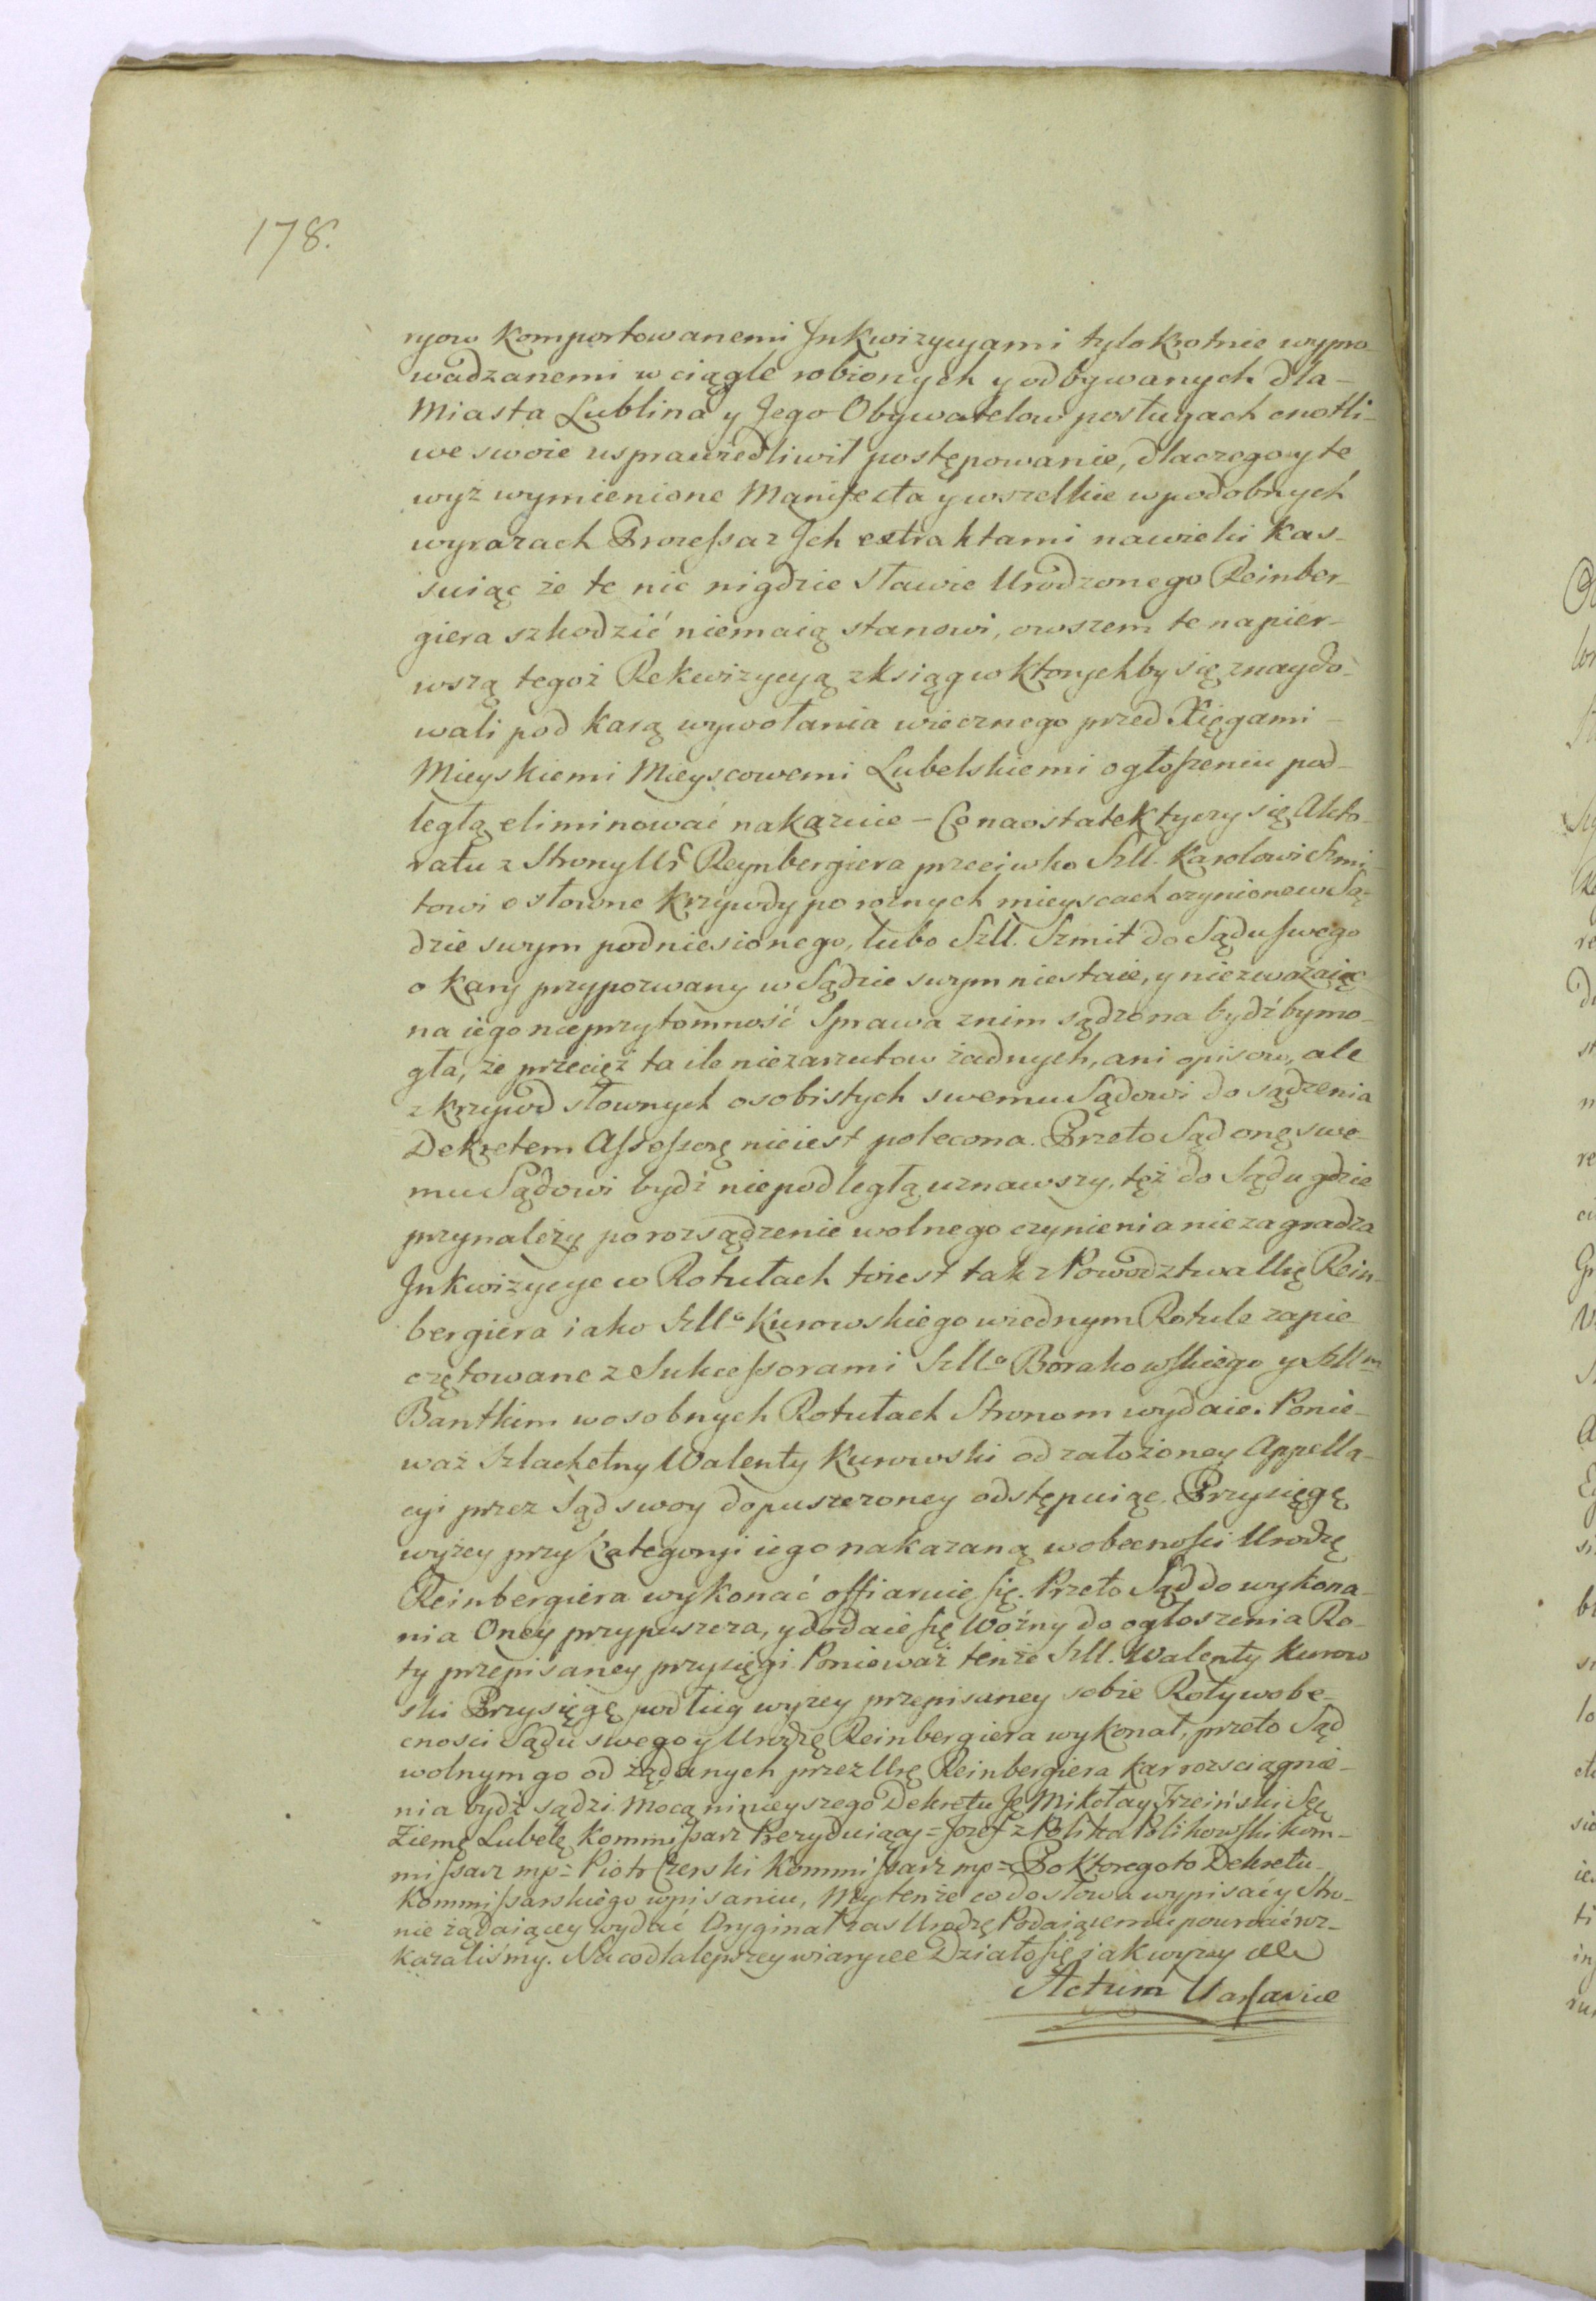 178.
ryow komportowanemi Jnkwizycyami tylokrotnie wypro-
wadzanemi w ciągle robionych y odbywanych dla-
Miasta Lublina y Jego Obywatelow posługach cnotli-
we swoie usprawiedliwił postępowanie, dlaczego y te
wyż wymienione Manifesta y wszelkie w podobnych
wyrazach Processa z Jch extraktami nawieki kas-
suiąc że te nic nigdzie sławie Urodzonego Reinber-
giera szkodzić niemaią stanowi, owszem te napier-
wszą tegoż Rekwizycyą z ksiąg w ktorych by się znaydo-
wali pod karą wywołania wiecznego przed Xięgami-
Mieyskiemi Mieyscowemi Lubelskiemi ogłoszeniu pod-
ległą eliminować nakazuie - Co naostatek tyczy się Akto-
ratu z Strony Ur Reynbergiera przeciwko Szll. Karolowi Szmi-
towi o słowne krzywdy po roznych mieyscach czynione w Są-
dzie swym podniesionego, lubo Szll. Szmit do Sądu swego
o kary przypozwany w Sądzie swym niestaie, y niezważaiąc
na iego nieprzytomność Sprawa z nim sądzona bydź by mo-
gła, że przecież ta ile niezarzutow żadnych, ani opisow, ale
z krzywd słownych osobistych swemu Sądowi do sądzenia
Dekretem Assessorę nieiest polecona. Przeto Sąd onę swe-
mu Sądowi bydź niepodległą uznawszy, tęż do Sądu gdzie
przynależy po rozsądzenie wolnego czynienia niezagradza
Jnkwizycye w Rotułach toiest tak z Powodztwa Urę Rein-
bergiera iako Szllo Kurowskiego wiednym Rotule zapie-
czętowane z Sukcessorami Szllo Borakowskiego y Szllm
Bantkim w osobnych Rotułach Stronom wydaie. Ponie-
waż Szlachetny Walenty Kurowski od założoney Appella-
cyi przez Sąd swoy dopuszczoney odstępuiąc, Przysięgę
wyżey przy Kategoryi iego nakazaną w obecności Urodzę
Reinbergiera wykonać offiaruie się. Przeto Sąd do wykona-
nia Oney przypuszcza, y dodaie się Woźny do ogłoszenia Ro-
ty przepisaney przysięgi Ponieważ tenże Szll. Walenty Kurow
ski Przysięgę podług wyżey przepisaney sobie Roty w obe-
cnosci Sądu swego y Urodzę Reinbergiera wykonał, przeto Sąd
wolnym go od żądanych przez Urę Reinbergiera kar rozsciągnie-
nia bydź sądzi. Mocą ninieyszego Dekretu Ję Mikołay Trzciński Sęę
Ziemę Lubelę Kommissarz Prezyduiący = Jozef z Polika Polikowski kom-
missarz mp = Piotr Czerski Kommissarz mp = Po ktorego to Dekretu-
Kommissarskiego wpisaniu, My tenże co do słowa wypisać y Stro-
nie żądaiącey wydać Oryginał zas Urodzę Podaiącemu powrocić roz-
kazaliśmy. Na co dla lepszey wiary &c Działo się jak wyżey &c
Actum Varsaviæ